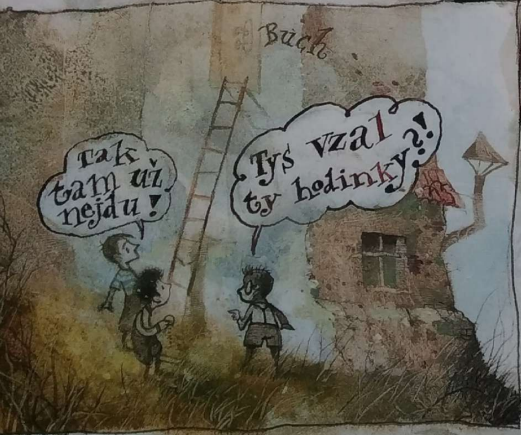 Buch
Tak
tam už
nejdu!
Tys vzal
ty hodinky?!